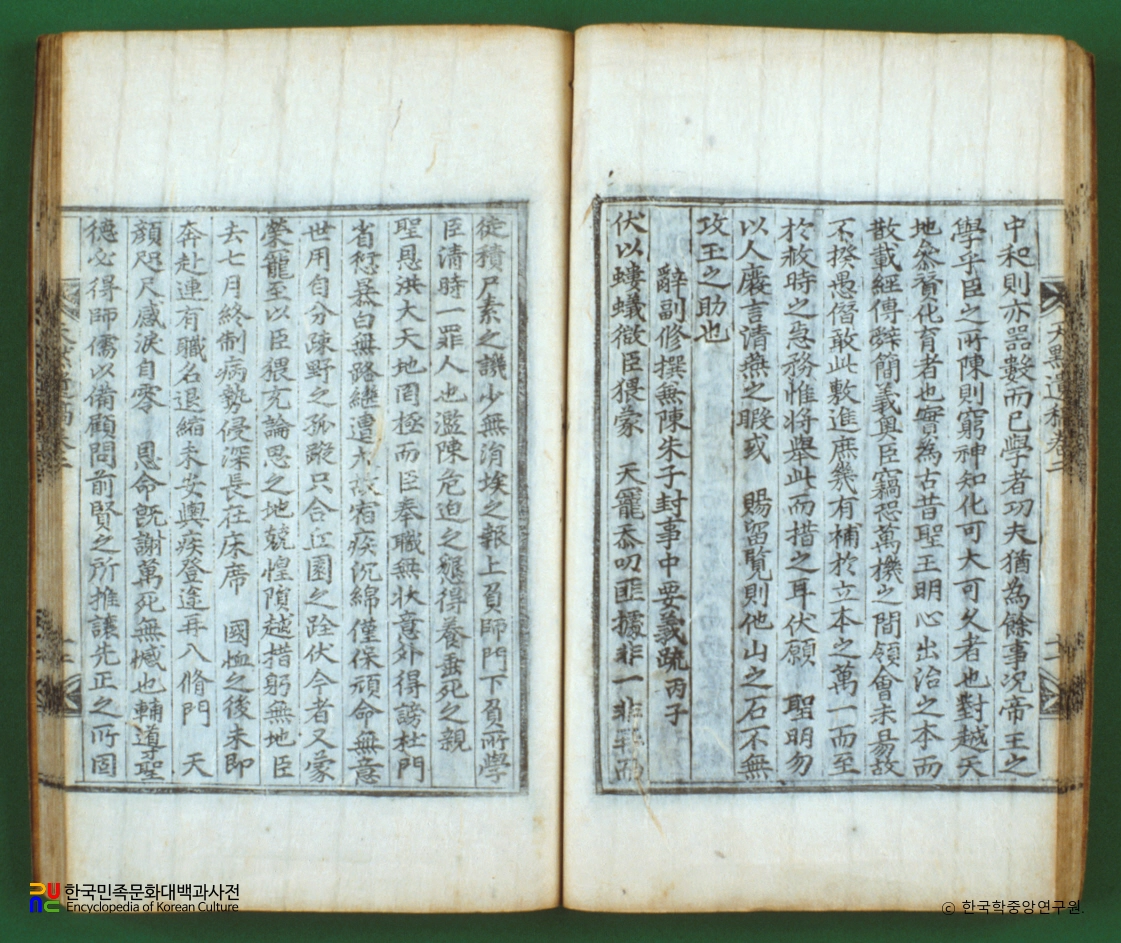 天默遺稿卷二
中和則亦器數而已學者功夫猶為餘事况帝王之
學乎臣之所陳則窮神知化可大可久者也對越天
地參贊化育者也實為古昔聖王明心出治之本而
散載經傳辭簡義奧臣竊恐萬機之間領會未易故
不揆愚僭敢此敷進庶幾有補於立本之萬一而至
於救時之急務惟將舉此而措之耳伏願 聖明勿
以人廢言清燕之暇或 賜留覽則他山之石不無
攻玉之助也
辭副修撰兼陳朱子封事中要義疏 丙子
伏以螻蟻微臣猥蒙 天寵忝叨匪據非一非再而
徒積尸素之譏少無涓埃之報上負師門下負所學
臣淸時一罪人也濫陳危迫之懇得養垂死之親
聖恩洪大天地罔極而臣奉職無狀意外得謗杜門
省愆暴白無路繼遭大故宿疾沉綿僅保頑命無意
世用自分踈野之孤蹤只合丘園之跧伏今者又蒙
榮寵至以臣猥充論思之地兢惶隕越措躬無地臣
去七月終制病勢侵深長在床席 國恤之後未即
奔赴連有職名退縮未安輿疾登途再入脩門 天
顏咫尺感淚自零 恩命旣謝萬死無憾也輔導聖
德必得師儒以備顧問前賢之所推讓先正之所固
한국민족문화대백과사전
Encyclopedia of Korean Culture
ⓒ 한국학중앙연구원.